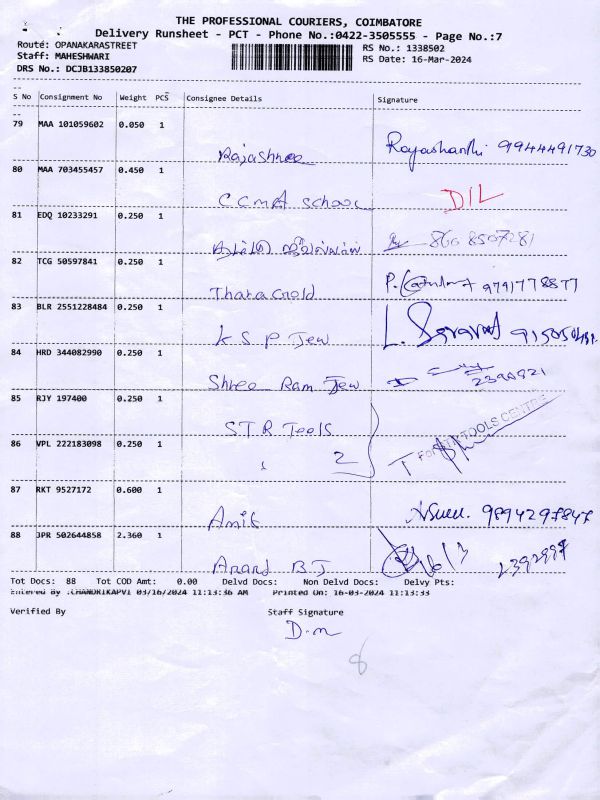 THE PROFESSIONAL COURIERS, COIMBATORE
Delivery Runsheet - PCT - Phone No.:0422-3505555 - Page No.:7
Route: OPANAKARASTREET RS No.: 1338502
Staff: MAHESHWARI RS Date: 16-Mar-2024
DRS No.: DCJB133850207
S No Consignment No Weight PCS Consignee Details Signature
79 MAA 101059602 0.050 1
Rajashree Rajashanthi 9944491730
80 MAA 703455457 0.450 1
CCMA School DIL
81 EDQ 10233291 0.250 1
860 8507281
82 TCG 50597841 0.250 1
Thangagold P. 9791778877
83 BLR 2551228484 0.250 1
KSP Jew L.
84 HRD 344082990 0.250 1
Shree Ram Jew
85 RJY 197400 0.250 1
STR Tools TOOLS CENTRE
86 VPL 222183098 0.250 1
2
87 RKT 9527172 0.600 1
Amit 9894297847
88 JPR 502644858 2.360 1
Anand BJ
Tot Docs: 88 Tot COD Amt: 0.00 Delvd Docs: Non Delvd Docs: Delvy Pts:
Entered By :CHANDRIKAPVI 03/16/2024 11:13:36 AM Printed On: 16-03-2024 11:13:33
Verified By Staff Signature
D.m
8